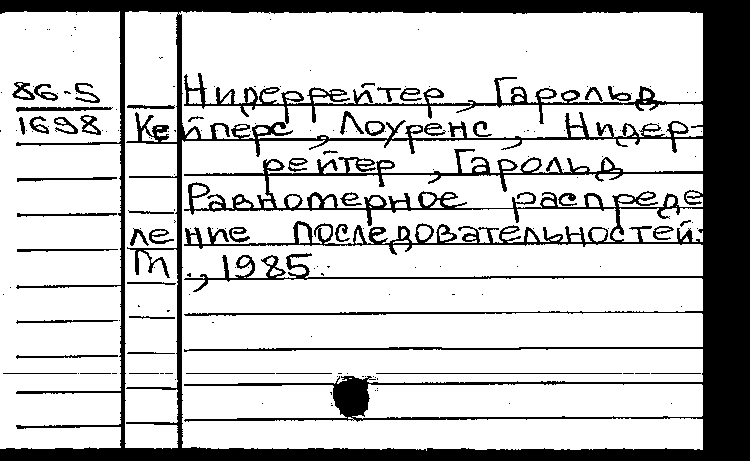 86-5 Нидеррейтер, Гарольд
1698 Кейперс, Лоуренс, Нидер-
рейтер, Гарольд
Равномерное распреде
ление последовательностей:
М., 1985.